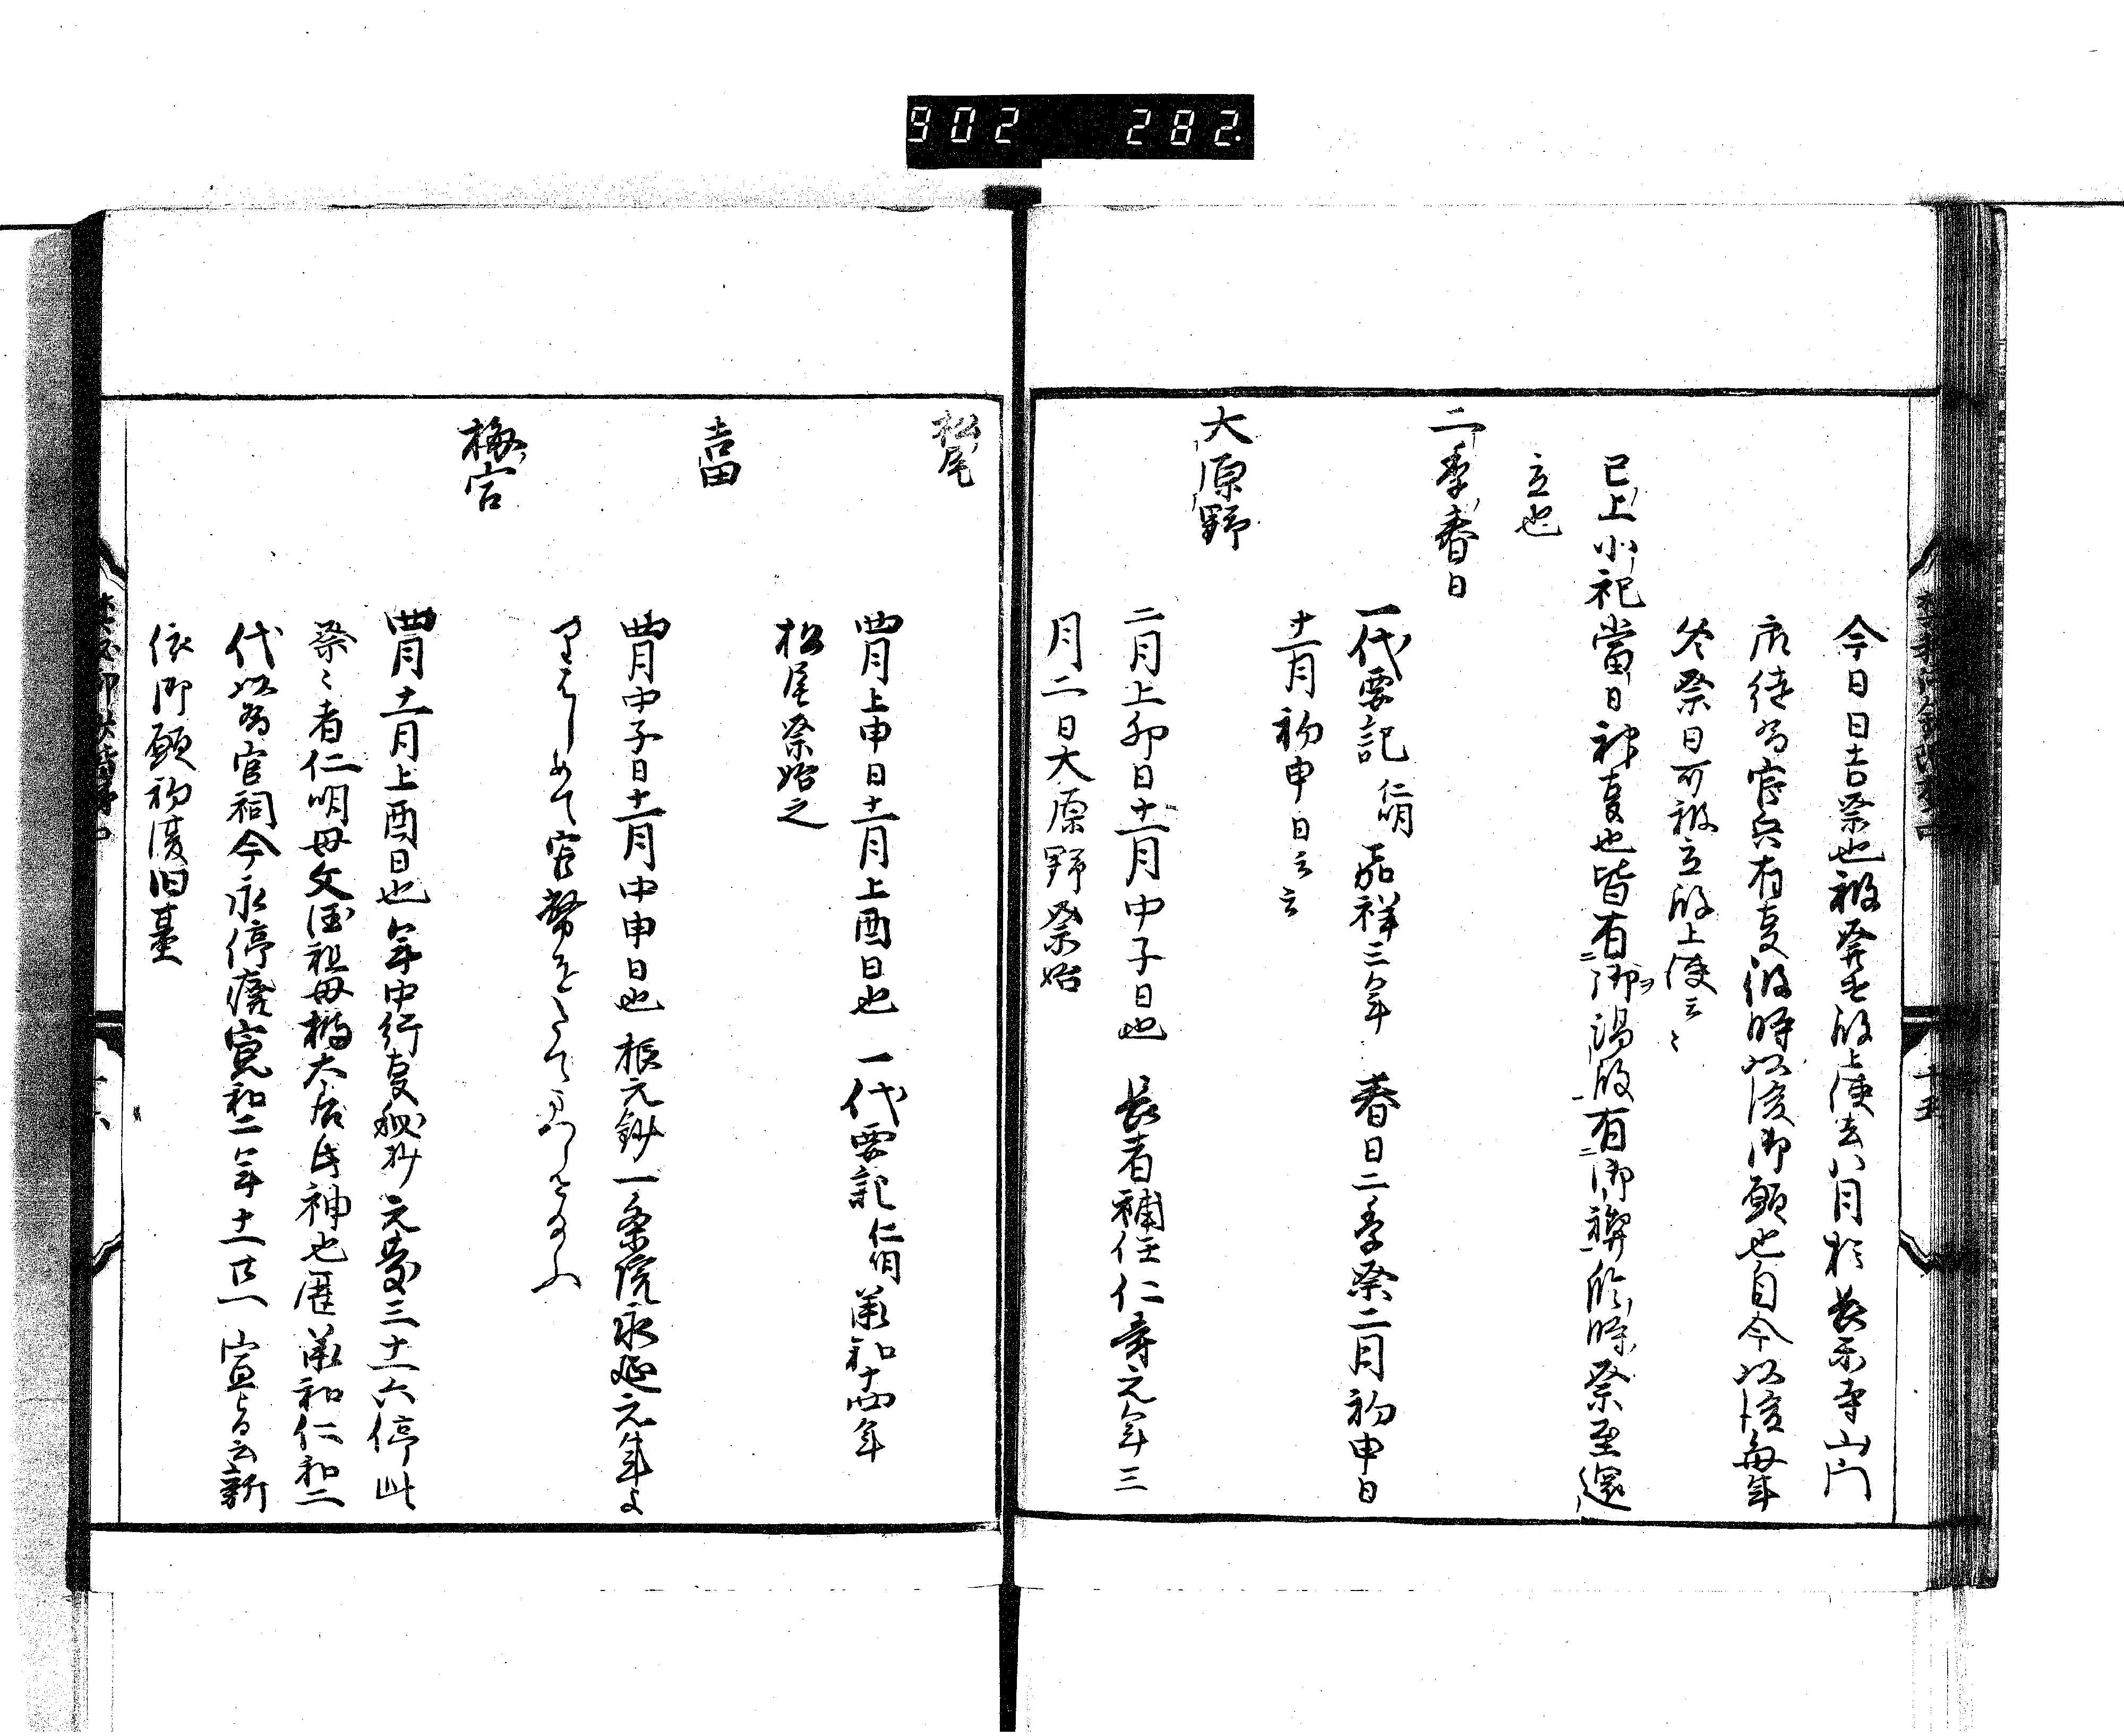 902 282
今日日吉祭也被発遣殿上使去八月於長楽寺山門
衆徒為官兵有事彼時以後御願也自今以後毎年
祭日可被立殿上使云々
已上小祀當日神事也皆有御湯殿有御禊臨時祭至還
立也
二季春日
一代要記 仁明 嘉祥三年 春日二季祭二月初申日
十一月初申日云云
大原野
二月上卯日十一月中子日也 長者補任仁寿元年三
月二日大原野祭始
松尾
四月上申日十一月上酉日也 一代要記 仁明 承和十四年
松尾祭始之
吉田
四月中子日十一月中申日也 根元鈔一条院永延元年よ
りはしめて官幣をたてまつらせ給ふ
梅宮
四月十一月上酉日也 年中行事秘抄 元慶三十一六停此
祭々者仁明母文徳祖母橘太后氏神也歴承和仁和二
代以為官祠今永停廃寛和二年十一 宣旨云新
依御願初復旧基